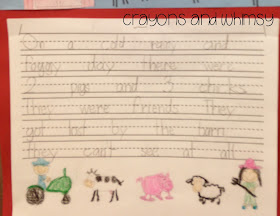 crayons and whimsy
On a cold rainy and
foggy day there were
2 pigs and 3 chicks.
They were friends. They
got lost by the barn.
They can't see at all